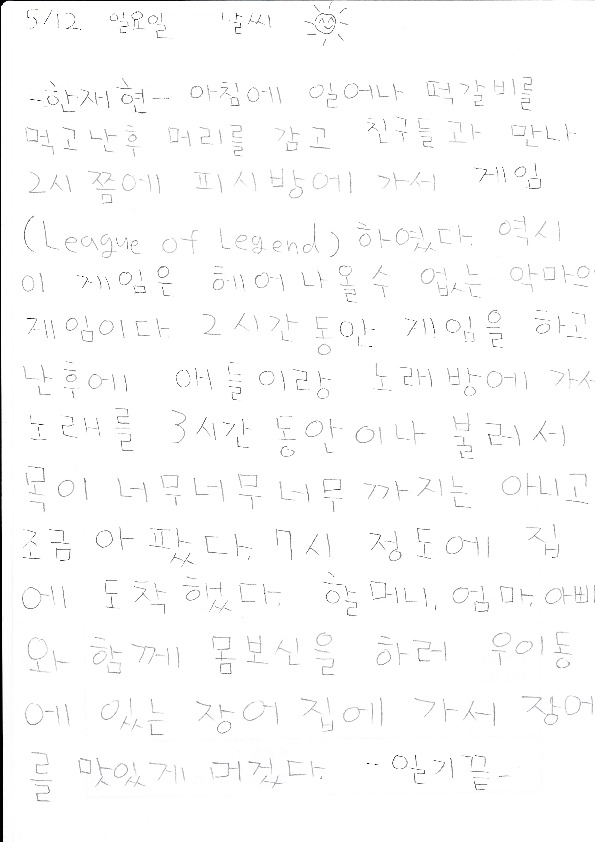 5/12 일요일 날씨
--한재현-- 아침에 일어나 떡갈비를
먹고난후 머리를 감고 친구들과 만나
2시쯤에 피시방에 가서 게임
(League of Legend) 하였다. 역시
이 게임은 헤어나올수 없는 악마의
게임이다. 2시간 동안 게임을 하고
난후에 애들이랑 노래방에 가서
노래를 3시간 동안이나 불러서
목이 너무너무너무 까지는 아니고
조금 아팠다. 7시 정도에 집
에 도착했다. 할머니, 엄마, 아빠
와 함께 몸보신을 하러 우이동
에 있는 장어집에 가서 장어
를 맛있게 머겄다. --일기끝--